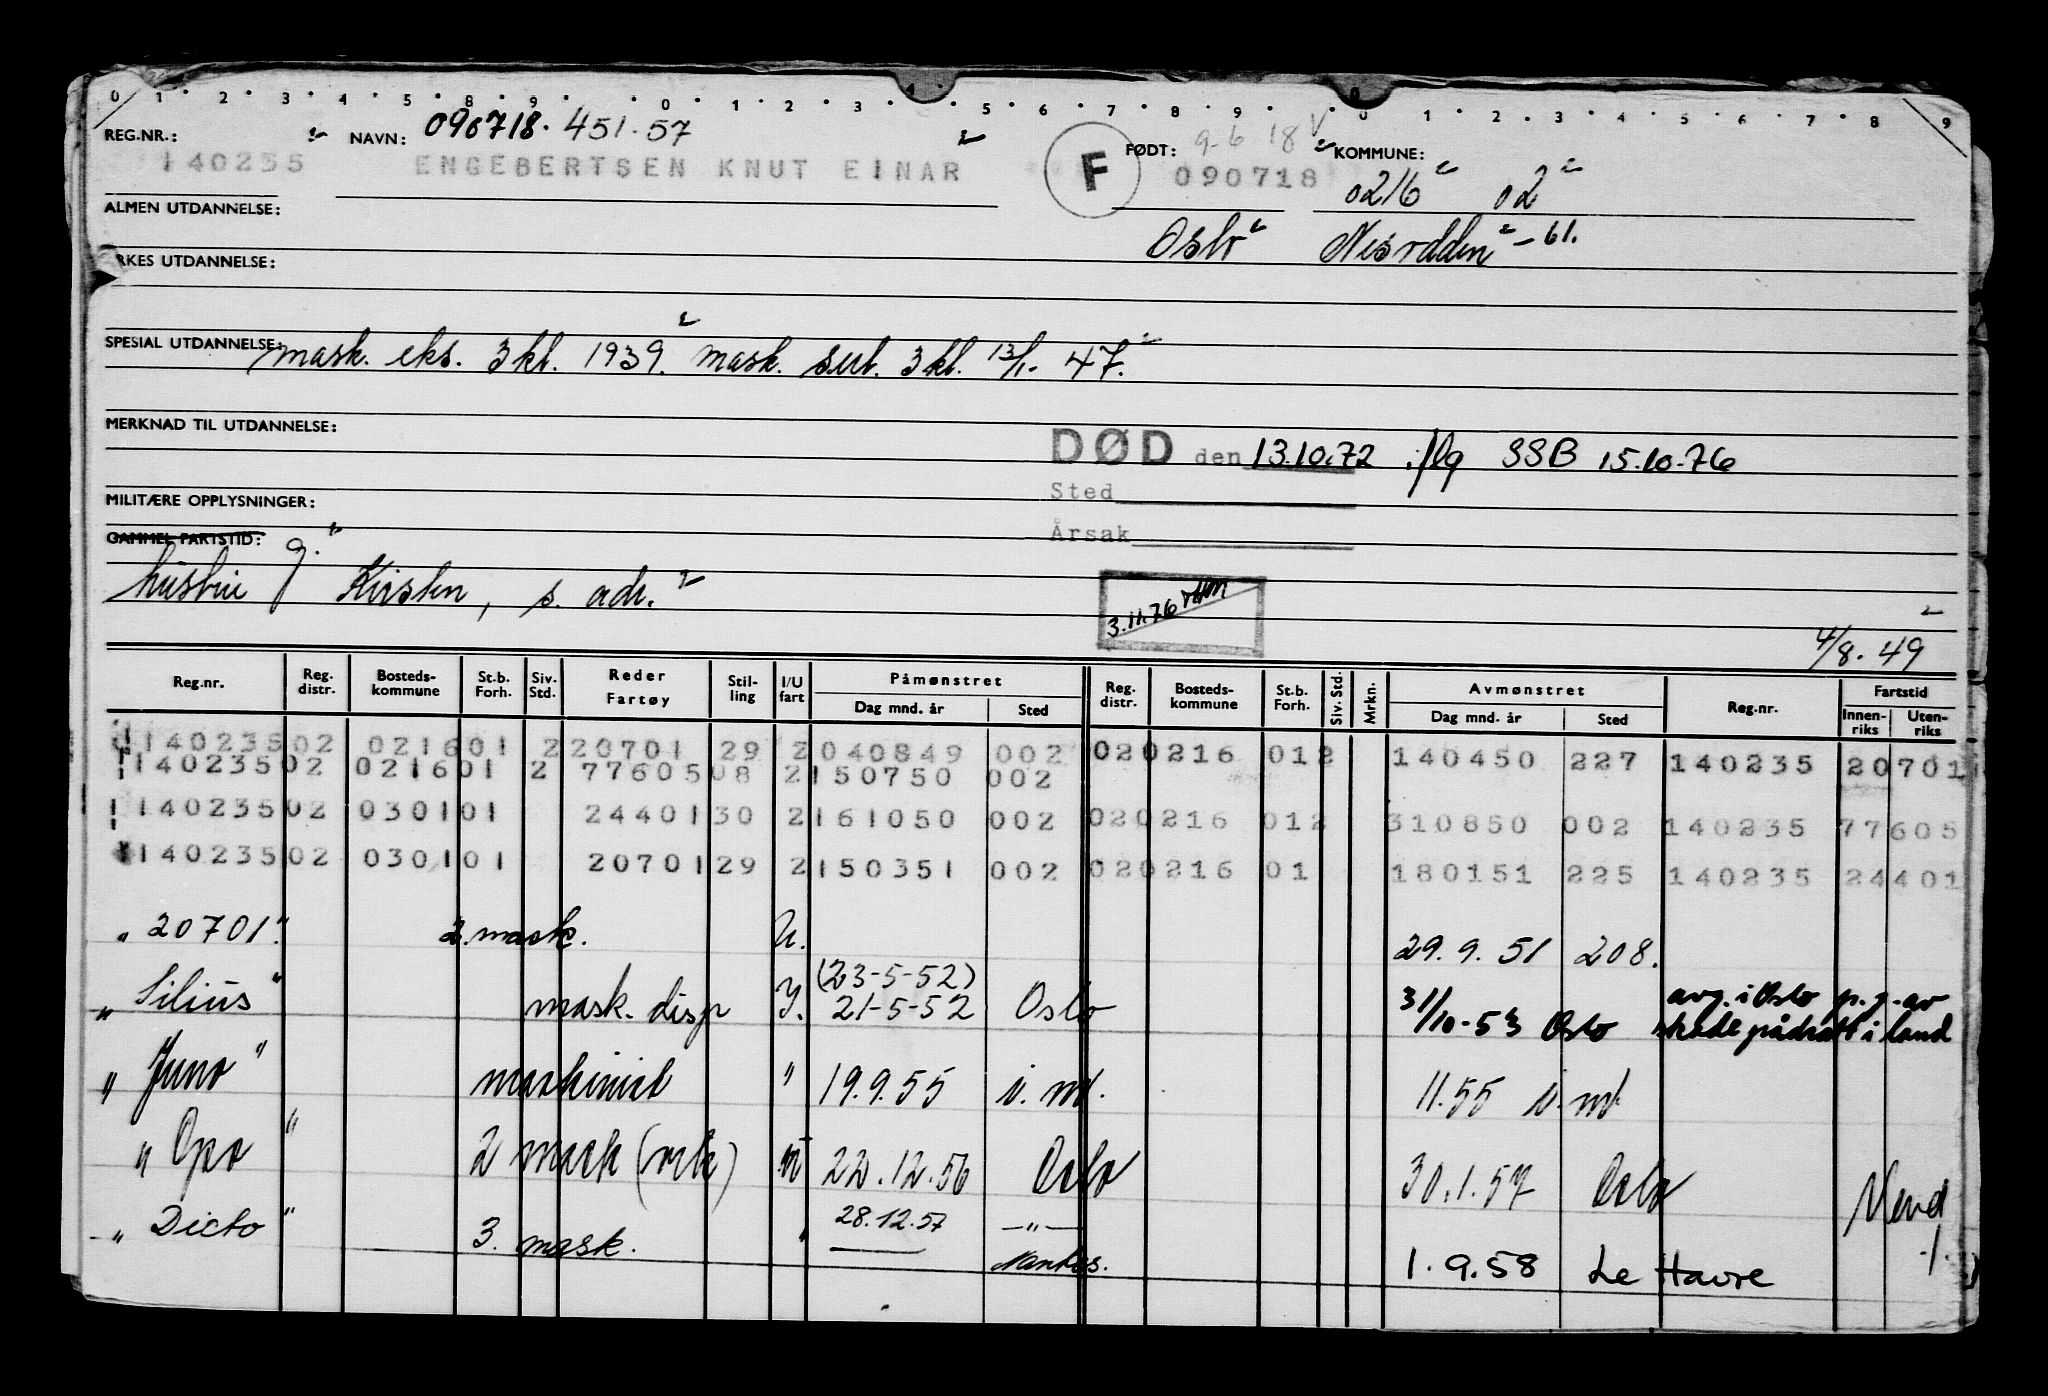 0 · 1 · 2 · 3 · 4 · 5 · 8 · 9 · · 0 · 1 · 2 · 3 · 4 · 5 · 6 · 7 · 8 · 9 · 0 · 1 · 2 · 3 · 4 · 5 · 6 · 7 · 8 · 9
REG.NR.: NAVN: 090718. 451.57 FØDT: 9-6 18 V KOMMUNE:
140255 ENGEBERTSEN KNUT EINAR F 090718 0216 02
ALMEN UTDANNELSE: Oslo Nesodden - 61.
RKES UTDANNELSE:
SPESIAL UTDANNELSE: mask. eks. 3 kl. 1939. mask. sert. 3 kl. 13/1- 47.
MERKNAD TIL UTDANNELSE:
DØD den 13.10.72 iflg SSB 15.10.76
MILITÆRE OPPLYSNINGER: Sted
GAMMEL FARTSTID: g. Årsak
hustru Kirsten, s. adr.
3.11.76
4/8. 49
Reg.nr. Reg. distr. Bosteds-kommune St.b. Forh. Siv. Std. Reder Fartøy Stil-ling I/U fart Påmønstret Dag mnd. år Sted Reg. distr. Bosteds-kommune St.b. Forh. Siv. Std. Mrkn. Avmønstret Dag mnd. år Sted Reg.nr. Fartstid Innen-riks Uten-riks
140235 02 0216 01 2 20701 29 2 040849 002 02 0216 01 2 140450 227 140235 20701
140235 02 0216 01 2 77605 08 2 150750 002
140235 02 0301 01 24401 30 2 161050 002 02 0216 01 2 310850 002 140235 77605
140235 02 0301 01 20701 29 2 150351 002 02 0216 01 180151 225 140235 24401
" 20701" 2. mask. U. 29. 9. 51 208.
(23-5-52)
" Silius" mask. disp I. 21-5-52 Oslo 31/10-53 Oslo avg. i Oslo p.g.av
skade pådratt i land
" Juno" maskinist " 19.9.55 11.55
" Opo " 2 mask 22.12.56 Oslo 30.1.57 Oslo
" Dicto " 3. mask. " 28.12.57 —"—
Nantes. 1.9.58 Le Havre